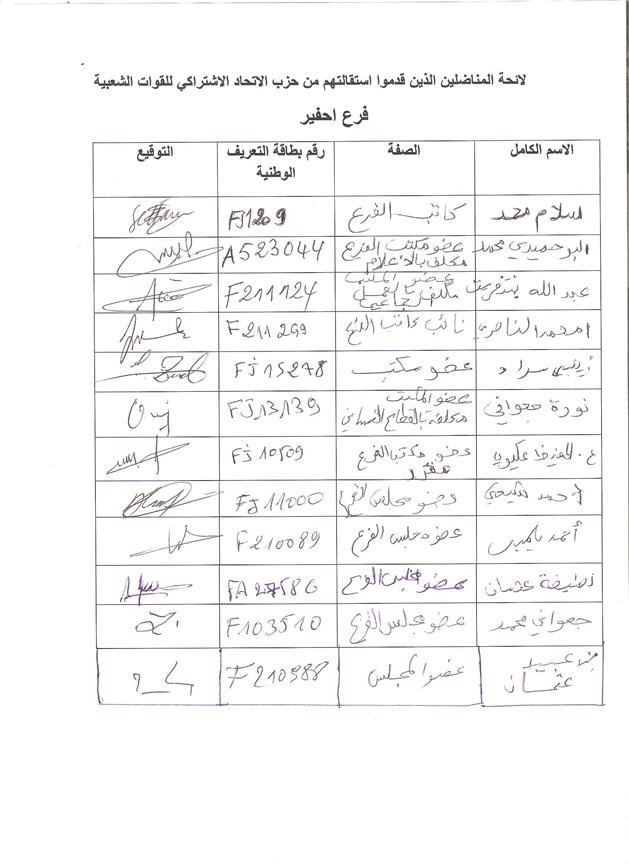 لائحة المناضلين الذين قدموا استقالتهم من حزب الاتحاد الاشتراكي للقوات الشعبية
فرع احفير
الاسم الكامل الصفة رقم بطاقة التعريف الوطنية التوقيع
اسلام محمد كاتب الفرع FJ1209
البوحميدي محمد عضو مكتب الفرع مكلف بالاعلام A523044
عبد الله عضو المكتب مكلف بالعمل F211124
امحمد الناصري نائب كاتب الفرع F211269
عضو مكتب FJ15278
نورة جعواني عضو المكتب مكلفة بالقطاع النسائي FJ13139
عضو مكتب الفرع مقرر FJ10509
احمد عضو مجلس الفرع FJ11000
أحمد عضو مجلس الفرع F210089
عثمان عضو مجلس الفرع FA27586
جعواني محمد عضو مجلس الفرع F103510
عثمان عضو المجلس F210988